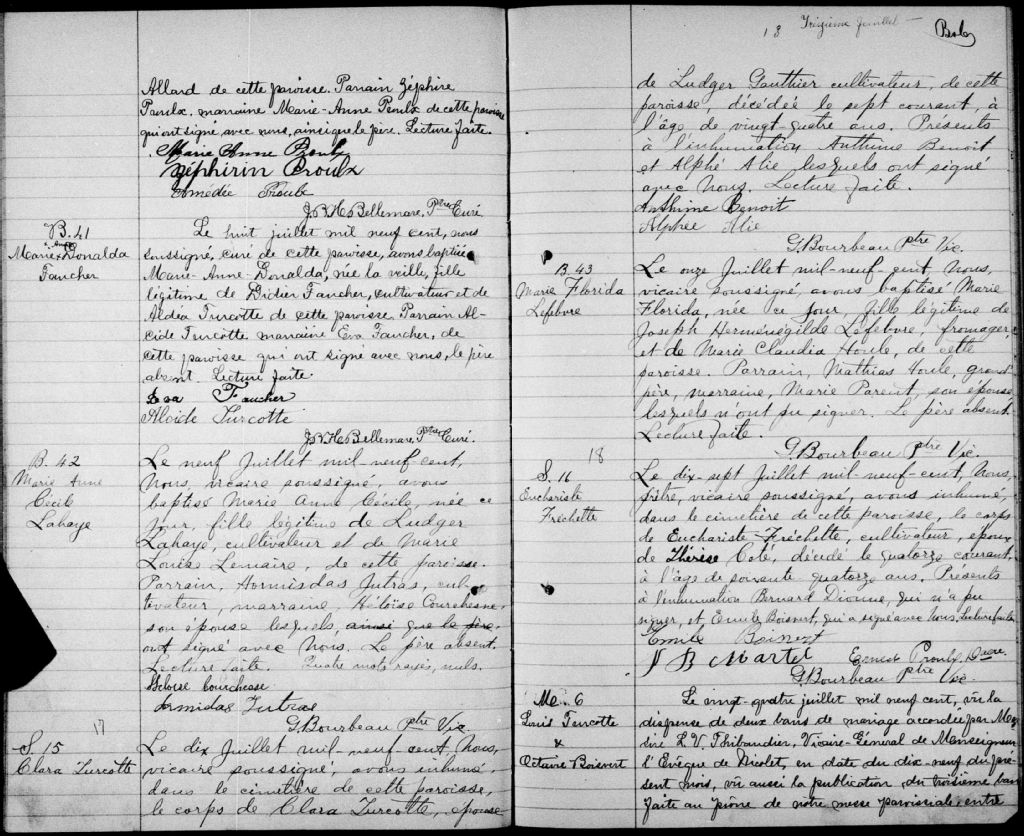 Allard de cette paroisse. Parrain Zéphire
Proulx, marraine Marie-Anne Proulx de cette paroisse
qui ont signé avec nous, ainsi que le père. Lecture faite.
Marie Anne Proulx
Zéphirin Proulx
Comédée Proulx
J.B.H. Bellemare, Ptre Curé
B. 41
Marie Anne Donalda
Faucher
Le huit juillet mil neuf cent, nous
soussigné, curé de cette paroisse, avons baptisé
Marie-Anne-Donalda, née la veille, fille
légitime de Didier Faucher, cultivateur et de
Aldea Turcotte de cette paroisse. Parrain Al-
cide Turcotte marraine Eva Faucher, de
cette paroisse qui ont signé avec nous, le père
absent. Lecture faite
Eva Faucher
Alcide Turcotte
J.B.H. Bellemare, Ptre Curé.
B. 42
Marie Anne
Cécile
Lahaye
Le neuf Juillet mil-neuf-cent,
Nous, vicaire soussigné, avons
baptisé Marie Anne Cécile, née ce
jour, fille légitime de Ludger
Lahaye, cultivateur et de Marie
Louise Lemaire, de cette paroisse.
Parrain, Hormisdas Jutras, cul-
tivateur, marraine, Héloïse Courchesne,
son épouse lesquels, ainsi que le père,
ont signé avec Nous. Le père absent.
Lecture faite. Quatre mots rayés, nuls.
Héloise Courchesne
ormidas Jutras
G. Bourbeau Ptre Vic.
17
S. 15
Clara Turcotte
Le dix Juillet mil-neuf-cent, Nous,
vicaire soussigné, avons inhumé,
dans le cimetière de cette paroisse,
le corps de Clara Turcotte, épouse
13 Treizième feuillet
de Ludger Gauthier cultivateur, de cette
paroisse, décédée le sept courant, à
l'âge de vingt-quatre ans. Présents
à l'inhumation Anthime Benoit
et Alphé Alie lesquels ont signé
avec Nous. Lecture faite.
Anthime Benoit
Alphée Alie
G. Bourbeau Ptre Vic.
B. 43
Marie Florida
Lefebvre
Le onze Juillet mil-neuf-cent, Nous,
vicaire soussigné, avons baptisé Marie
Florida, née ce jour, fille légitime de
Joseph Herménégilde Lefebvre, fromager,
et de Marie Claudia Houle, de cette
paroisse. Parrain, Mathias Houle, grand
père, marraine, Marie Parent, son épouse
lesquels n'ont pu signer. Le père absent.
Lecture faite.
G. Bourbeau Ptre Vic.
18
S. 16
Euchariste
Fréchette
Le dix-sept Juillet mil-neuf-cent, Nous,
prêtre, vicaire soussigné, avons inhumé,
dans le cimetière de cette paroisse, le corps
de Euchariste Fréchette, cultivateur, époux
de Thérèse Coté, décédé le quatorze courant,
à l'âge de soixante quatorze ans. Présents
à l'inhumation Bernard Dionne, qui n'a pu
signer, et Émile Boisvert, qui a signé avec Nous. Lecture faite.
Emile Boisvert
J B Martel Ernest Proulx, Diacre.
G. Bourbeau Ptre Vic.
M. 6
Louis Turcotte
&
Octavie Boisvert
Le vingt-quatre juillet mil neuf cent, vu la
dispense de deux bans de mariage accordée par Mes-
sire L.V. Thibaudier, Vicaire-Général de Monseigneur
l'Évêque de Nicolet, en date du dix-neuf du pré-
sent mois, vu aussi la publication du troisième ban
faite au prône de notre messe paroissiale, entre